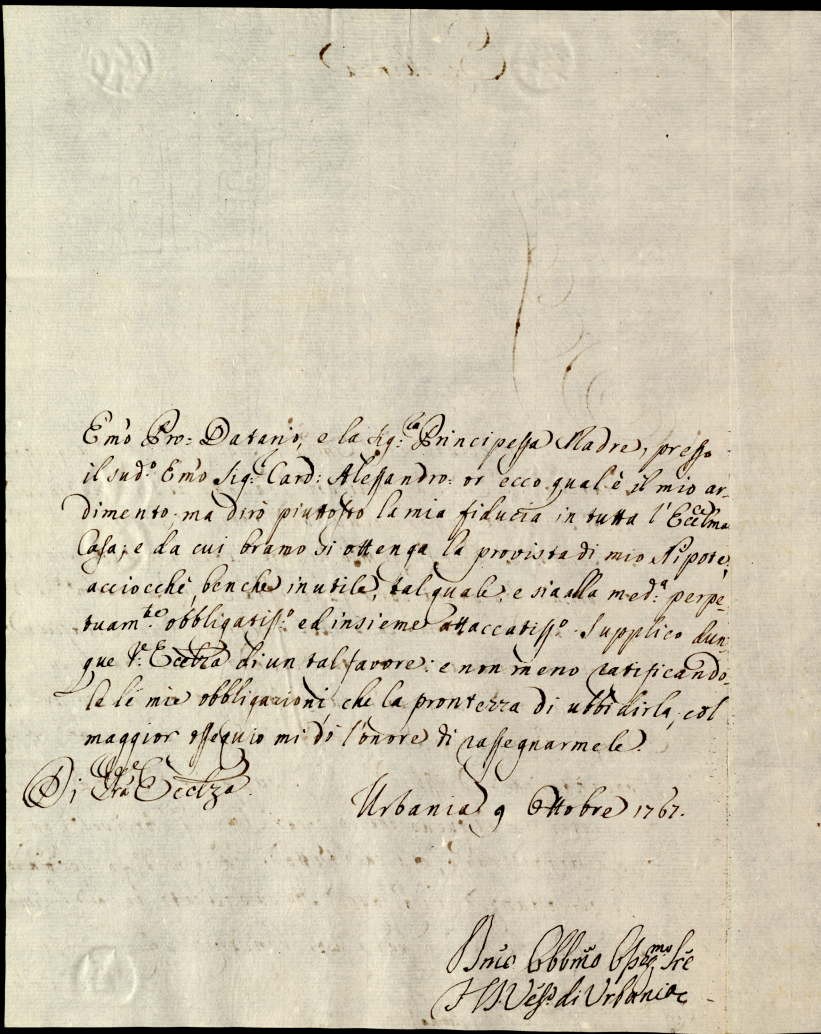 Em̃o Pro=Datario, e la Sig.ra Principessa Madre, presso
il sud.o Em̃o Sig.e Card: Alessandro: or ecco qual'è il mio ar-
dimento, ma dirò piuttosto la mia fiducia in tutta l'Ecc̃lma
Casa; e da cui bramo si ottenga la provista di mio Nipote,
acciocchè, benche inutile, tal quale, e sia alla med.a perpe-
tuam.te obbligatiss.o ed insieme attaccatiss.o. Supplico dun-
que V.a Eccl̃za di un tal favore: e non meno ratificando-
le le mie obbligazioni, che la prontezza di ubbidirla, col
maggior ossequio mi dò l'onore di rassegnarmele
Di Vr̃a Eccl̃za
Urbania 9 Ottobre 1767.
Obbm̃o
di Urbania